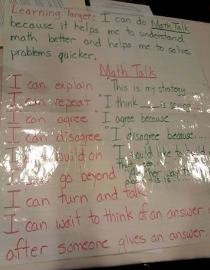 Learning Target: I can do Math Talk
because it helps me to understand
math better and helps me to solve
problems quicker.
Math Talk
I can explain "This is my strategy
I can repeat "I think
I can agree "I agree because
I can disagree "I disagree because....
build on I would like to
go beyond
I can turn and talk
I can wait to think of an answer
after someone gives an answer